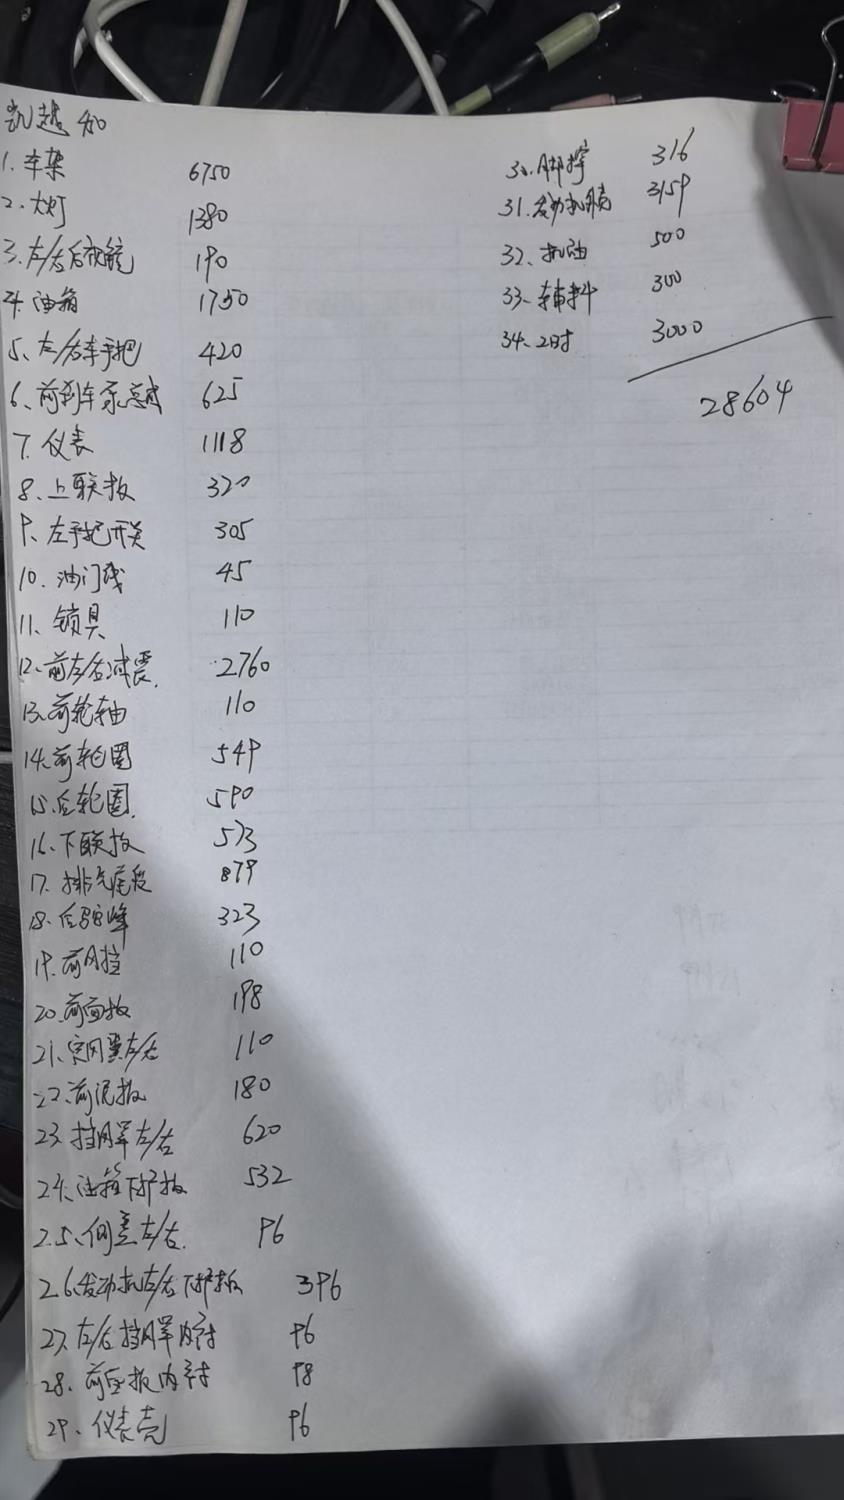 凯越400
1. 车架 6750
2. 大灯 1380
3. 左/右后视镜 190
4. 油箱 1750
5、左/右车手把 420
6、前刹车泵总成 625
7. 仪表 1118
8、上联板 320
9、左手把开关 305
10. 油门线 45
11、锁具 110
12、前左/右减震. 2760
13、前轮轴 110
14、前轮圈 549
15、后轮圈. 590
16、下联板 573
17. 排气尾段 879
18、后驼峰 323
19. 前风挡 110
20、前面板 198
21、定风翼左/右 110
22、前泥板 180
23、挡风罩左/右 620
24、油箱下护板 532
25、侧盖左/右. 96
26、发动机左/右下护板 396
27、左/右挡风罩内衬 96
28、前面板内衬 98
29、仪表壳 96
30、脚撑 316
31、发动机壳 3159
32、机油 500
33、辅料 300
34、工时 3000
28604